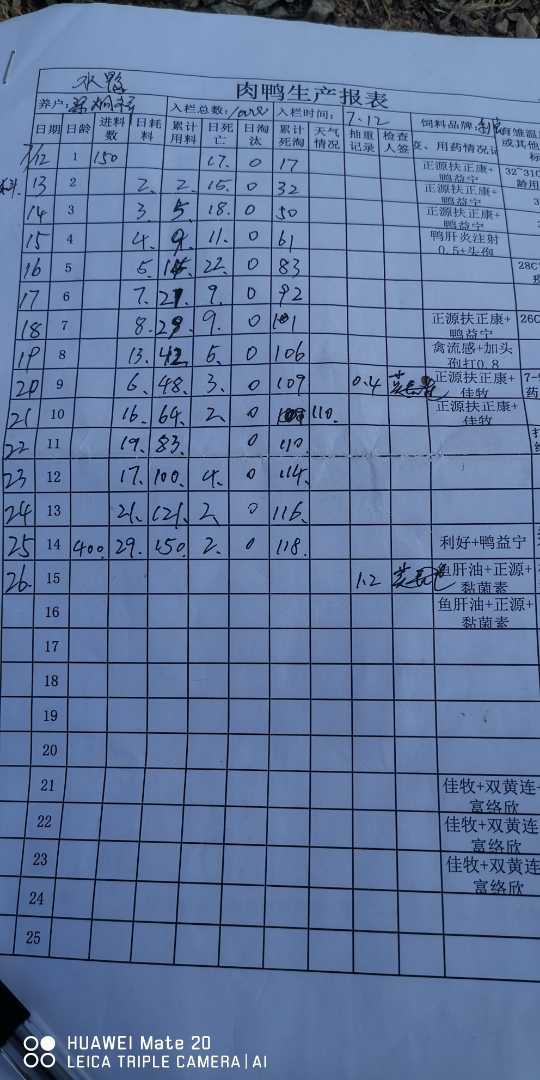 水鸭
肉鸭生产报表
养户: 入栏总数: 入栏时间: 7.12 饲料品牌:
日期 日龄 进料数 日耗料 累计用料 日死亡 日淘汰 累计死淘 天气情况 抽重记录 检查人签 变、用药情况记
7/12 1 150 17. 0 17 正源扶正康+鸭益宁
13 2 2. 2. 15. 0 32 正源扶正康+鸭益宁
14 3 3. 5. 18. 0 50 正源扶正康+鸭益宁
15 4 4. 9. 11. 0 61 鸭肝炎注射0.5+头孢
16 5 5. 14. 22. 0 83 28C
17 6 7. 21. 9. 0 92
18 7 8. 29. 9. 0 101 正源扶正康+鸭益宁 26C
19 8 13. 42. 5. 0 106 禽流感+加头孢打0.8
20 9 6. 48. 3. 0 109 0.4 正源扶正康+佳牧
21 10 16. 64. 2. 0 110. 正源扶正康+佳牧
22 11 19. 83. 0 110
23 12 17. 100. 4. 0 114.
24 13 21. 121. 2. 0 116.
25 14 400. 29. 150. 2. 0 118. 利好+鸭益宁
26. 15 1.2 鱼肝油+正源+黏菌素
16 鱼肝油+正源+黏菌素
17
18
19
20
21 佳牧+双黄连+富络欣
22 佳牧+双黄连+富络欣
23 佳牧+双黄连+富络欣
24
25
HUAWEI Mate 20
LEICA TRIPLE CAMERA | AI